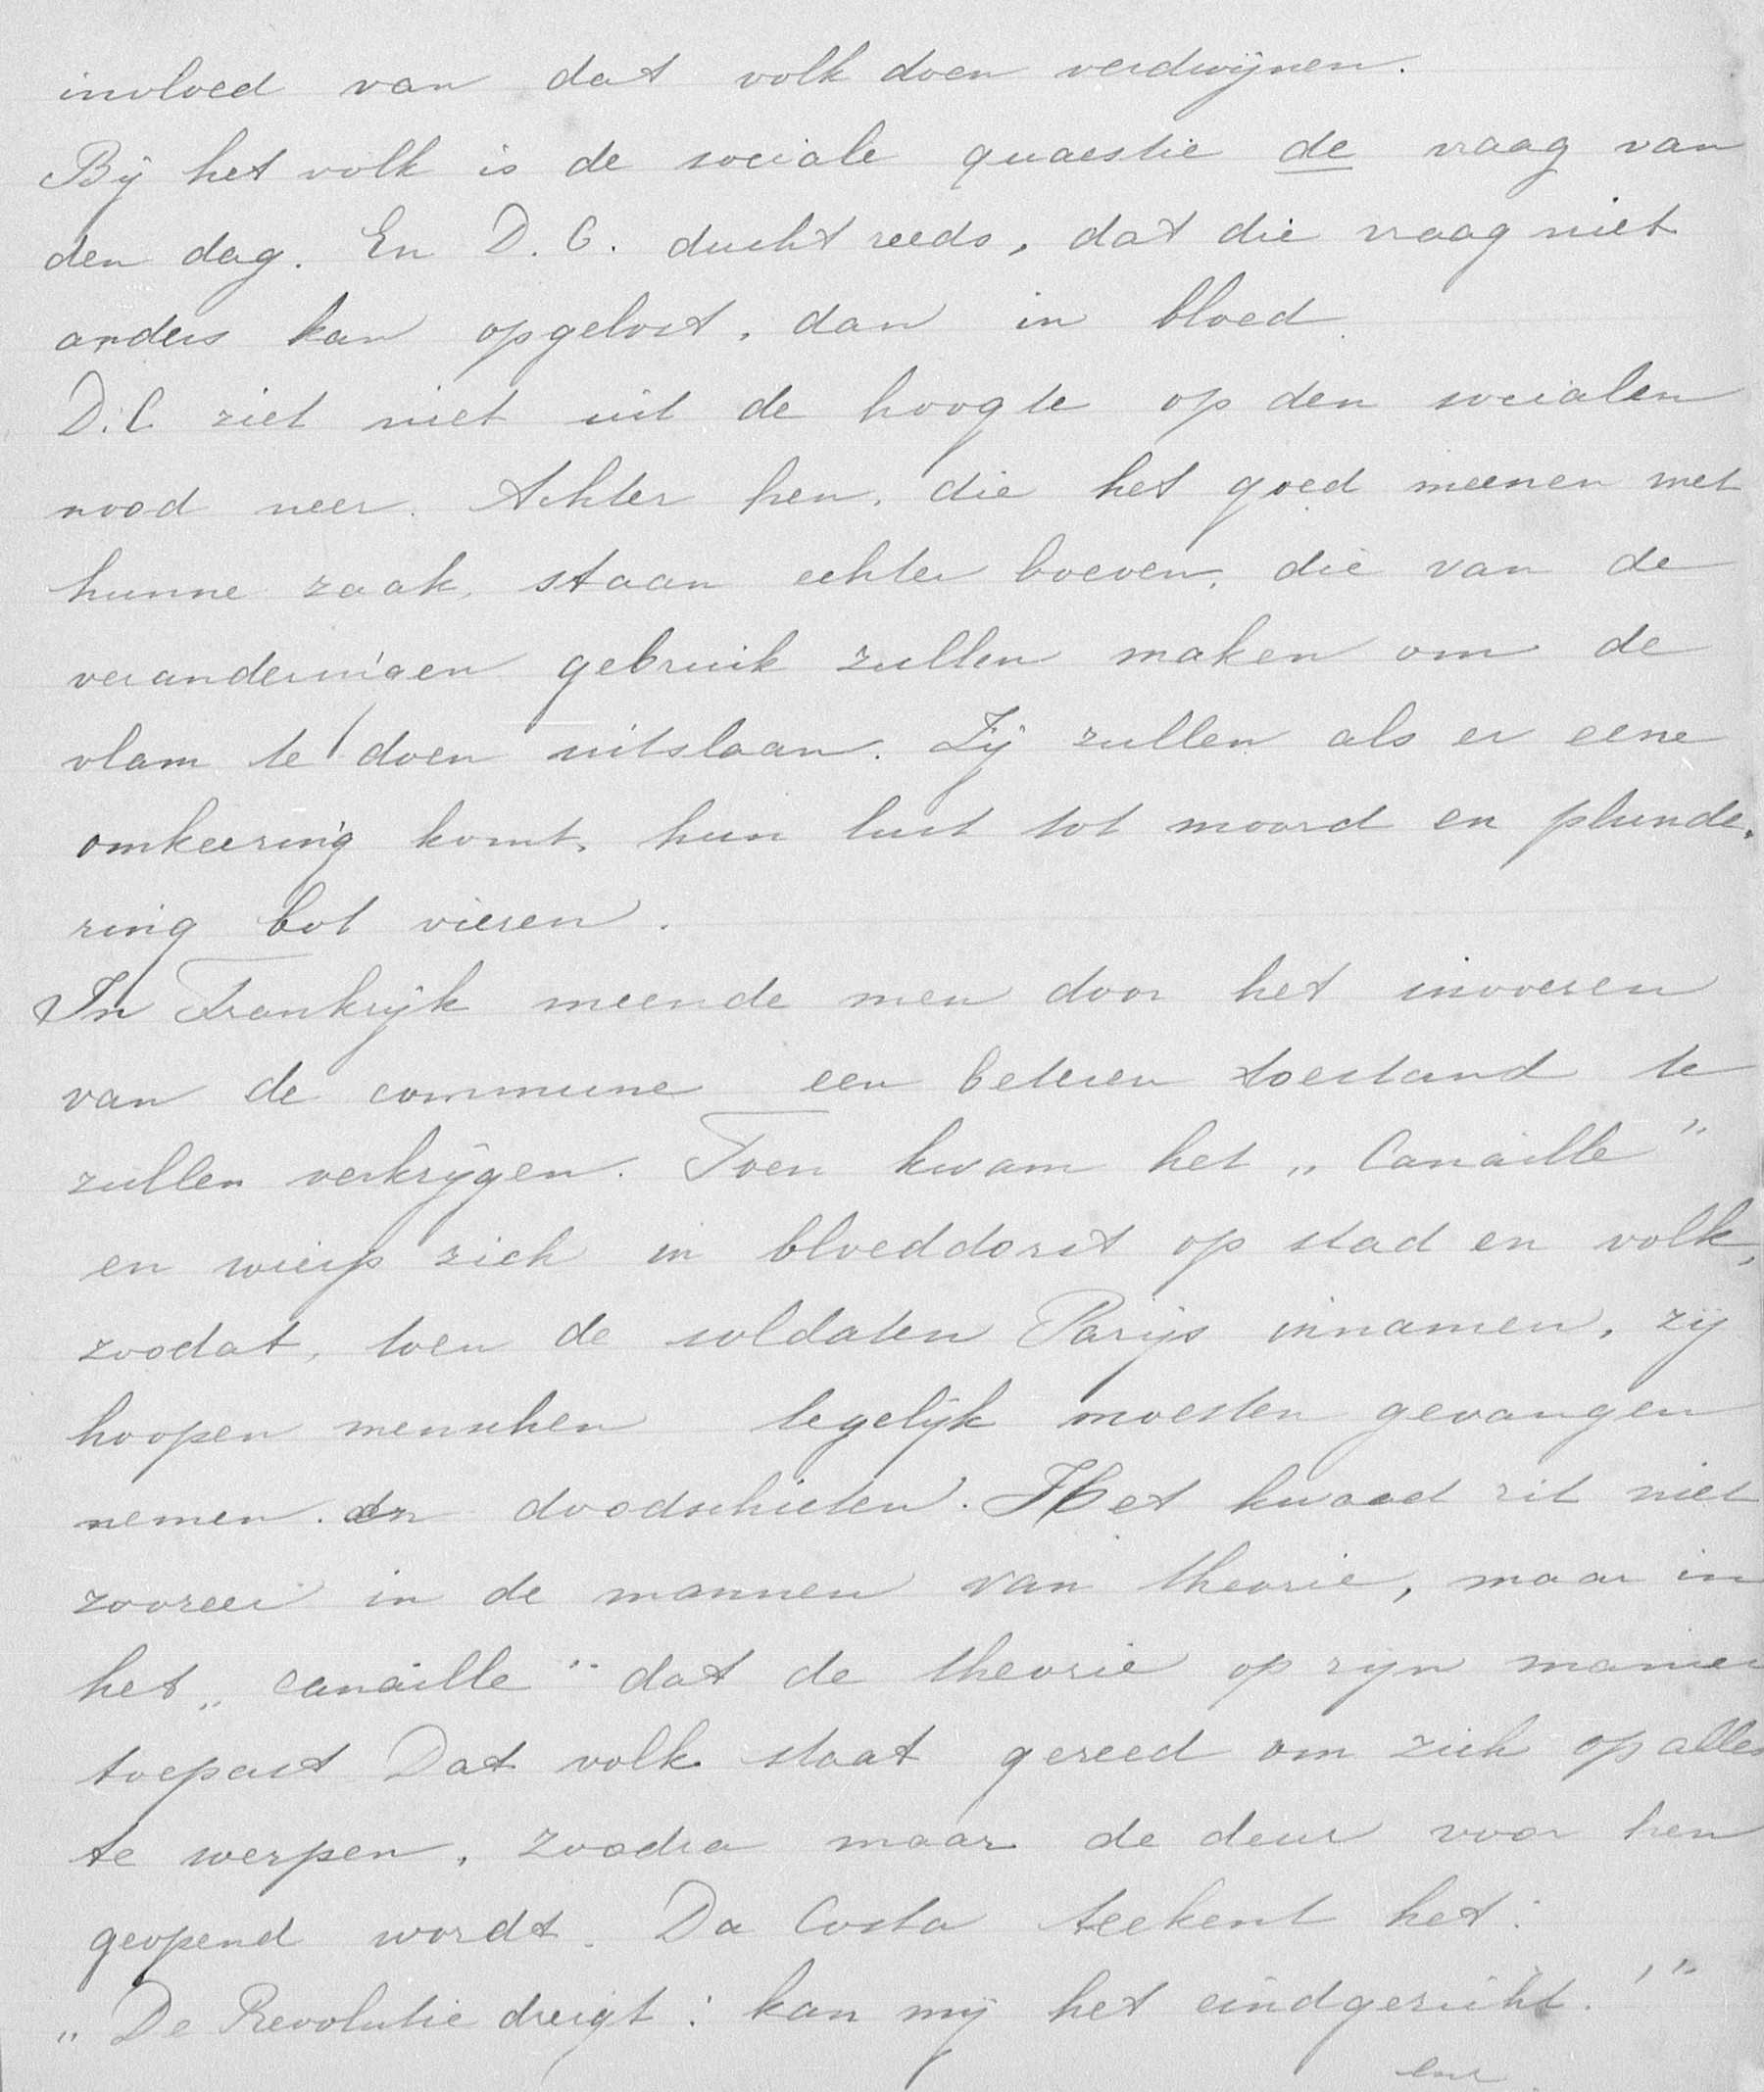 invloed van dat volk doen verdwijnen.
Bij het volk is de sociale quaestie de vraag van
den dag. En D. C. ducht reeds, dat die vraag niet
anders kan opgelost, dan in bloed.
D. C. ziet niet uit de hoogte op den socialen
nood neer. Achter hen, die het goed meenen met
hunne zaak, staan echter boeven, die van de
veranderingen gebruik zullen maken om de
vlam te doen uitslaan. Zij zullen als er eene
omkeering komt, hun lust tot moord en plunde-
ring bot vieren.
In Frankrijk meende men door het invoeren
van de commune een beteren toestand te
zullen verkrijgen. Toen kwam het „Canaille"
en wierp zich in bloeddorst op stad en volk,
zoodat, toen de soldaten Parijs innamen, zij
hoopen menschen tegelijk moesten gevangen
nemen en doodschieten. Het kwaad zit niet
zoozeer in de mannen van theorie, maar in
het „canaille" dat de theorie op zijn manier
toepast Dat volk staat gereed om zich op alles
te werpen, zoodra maar de deur voor hen
geopend wordt. Da Costa teekent het:
„De Revolutie dreigt: kan mij het eindgericht.'"